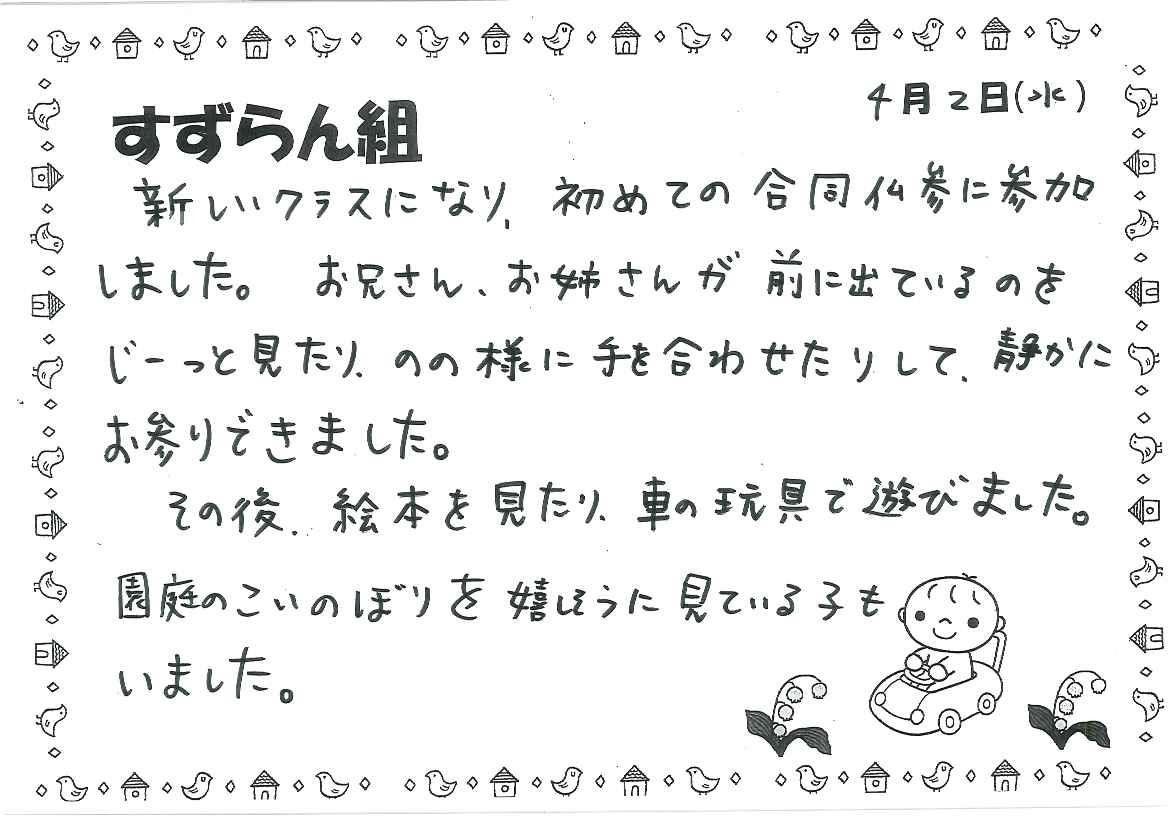 4月2日(水)
すずらん組
新しいクラスになり、初めての合同仏参に参加
しました。お兄さん、お姉さんが前に出ているのを
じーっと見たり、のの様に手を合わせたりして、静かに
お参りできました。
その後、絵本を見たり、車の玩具で遊びました。
園庭のこいのぼりを嬉しそうに見ている子も
いました。